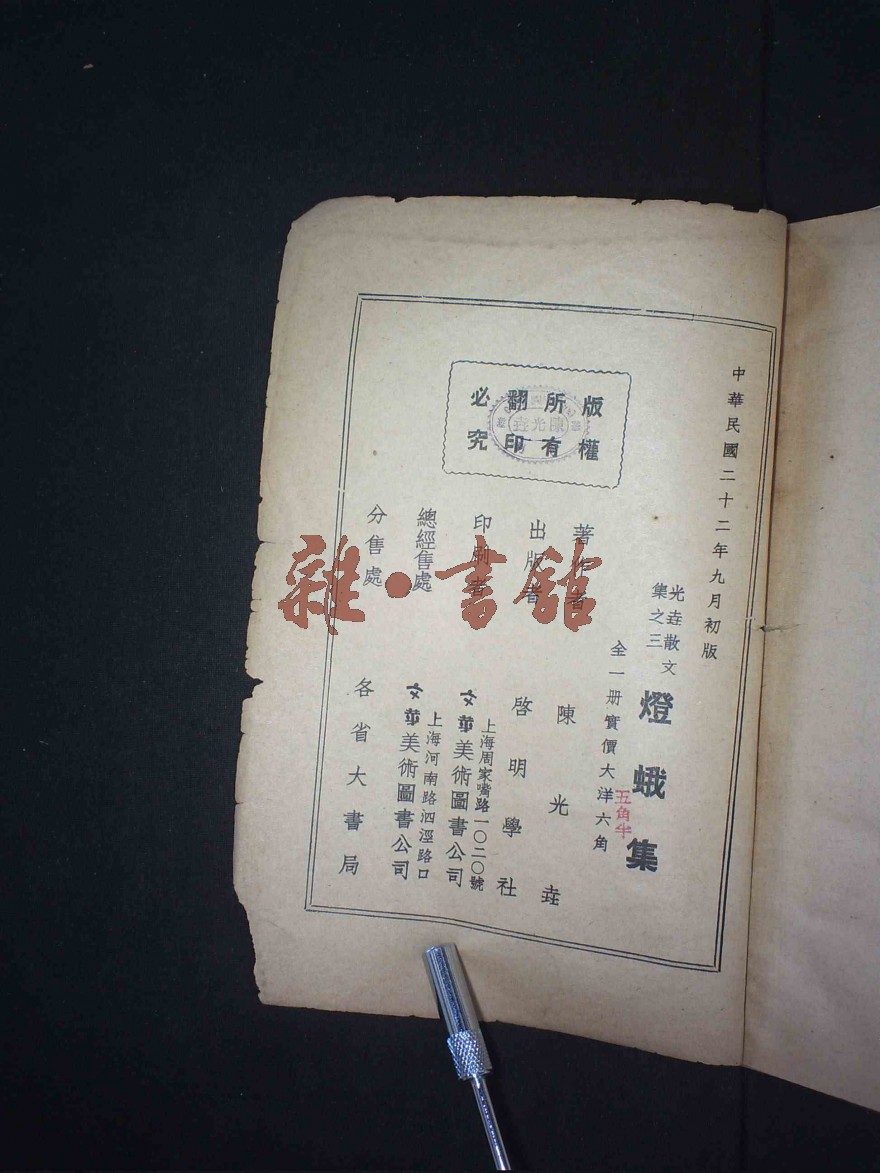 中華民國二十二年九月初版
光垚散文
集之三
燈蛾集
全一册實價大洋六角
五角半
版權
所有
翻印
必究
陳光垚
著作者
陳光垚
出版者
啓明學社
印刷者
上海周家嘴路一〇二〇號
文華美術圖書公司
總經售處
上海河南路泗涇路口
文華美術圖書公司
分售處
各省大書局
雜·書館